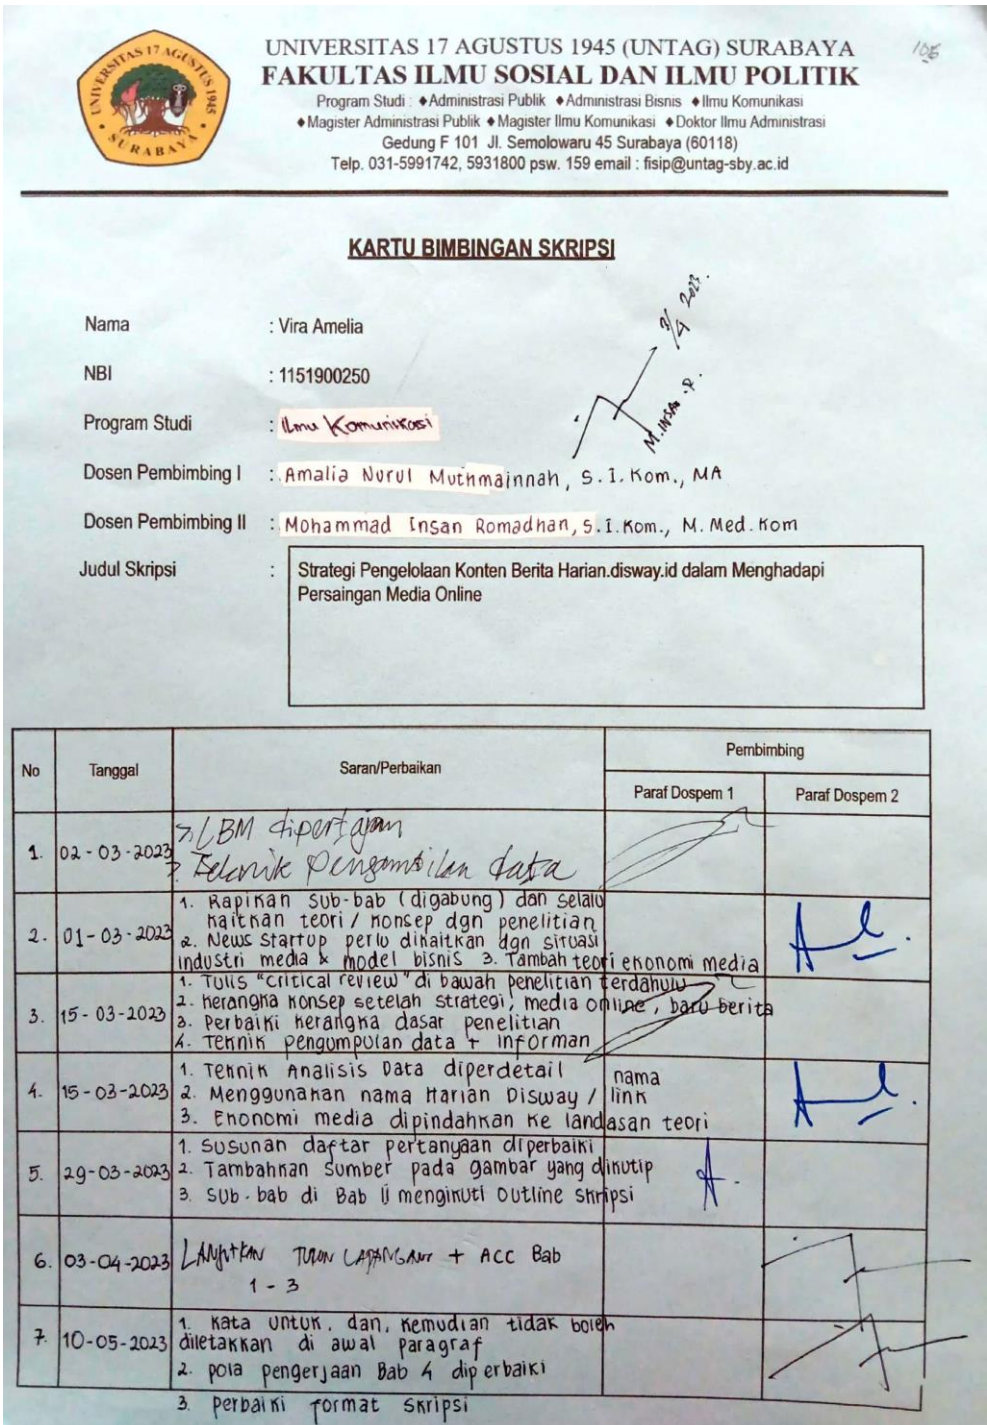 UNIVERSITAS 17 AGUSTUS 1945
SURABAYA
UNIVERSITAS 17 AGUSTUS 1945 (UNTAG) SURABAYA
106
FAKULTAS ILMU SOSIAL DAN ILMU POLITIK
Program Studi : ♦Administrasi Publik ♦Administrasi Bisnis ♦Ilmu Komunikasi
♦Magister Administrasi Publik ♦Magister Ilmu Komunikasi ♦Doktor Ilmu Administrasi
Gedung F 101 Jl. Semolowaru 45 Surabaya (60118)
Telp. 031-5991742, 5931800 psw. 159 email : fisip@untag-sby.ac.id
KARTU BIMBINGAN SKRIPSI
3/4 2023.
M. INSAN .R.
Nama : Vira Amelia
NBI : 1151900250
Program Studi : Ilmu Komunikasi
Dosen Pembimbing I : Amalia Nurul Muthmainnah, S.I.Kom., MA
Dosen Pembimbing II : Mohammad Insan Romadhan, S.I.Kom., M.Med.Kom
Judul Skripsi : Strategi Pengelolaan Konten Berita Harian.disway.id dalam Menghadapi
Persaingan Media Online
No Tanggal Saran/Perbaikan Pembimbing
Paraf Dospem 1 Paraf Dospem 2
1. 02-03-2023 > LBM dipertajam
> Teknik Pengambilan data
2. 01-03-2023 1. Rapikan sub-bab (digabung) dan selalu
kaitkan teori / konsep dgn penelitian
2. News Startup perlu dikaitkan dgn situasi
industri media & model bisnis 3. Tambah teori ekonomi media
3. 15-03-2023 1. Tulis "critical review" di bawah penelitian terdahulu
2. Kerangka konsep setelah strategi, media online, baru berita
3. Perbaiki kerangka dasar penelitian
4. Teknik pengumpulan data + informan
4. 15-03-2023 1. Teknik Analisis Data diperdetail
2. Menggunakan nama Harian Disway / nama link
3. Ekonomi media dipindahkan ke landasan teori
5. 29-03-2023 1. Susunan daftar pertanyaan diperbaiki
2. Tambahkan sumber pada gambar yang dikutip
3. Sub-bab di Bab ii mengikuti outline skripsi
6. 03-04-2023 LANJUTKAN TURUN LAPANGAN + ACC Bab
1 - 3
7. 10-05-2023 1. Kata untuk, dan, kemudian tidak boleh
diletakkan di awal paragraf
2. pola pengerjaan Bab 4 diperbaiki
3. Perbaiki format skripsi